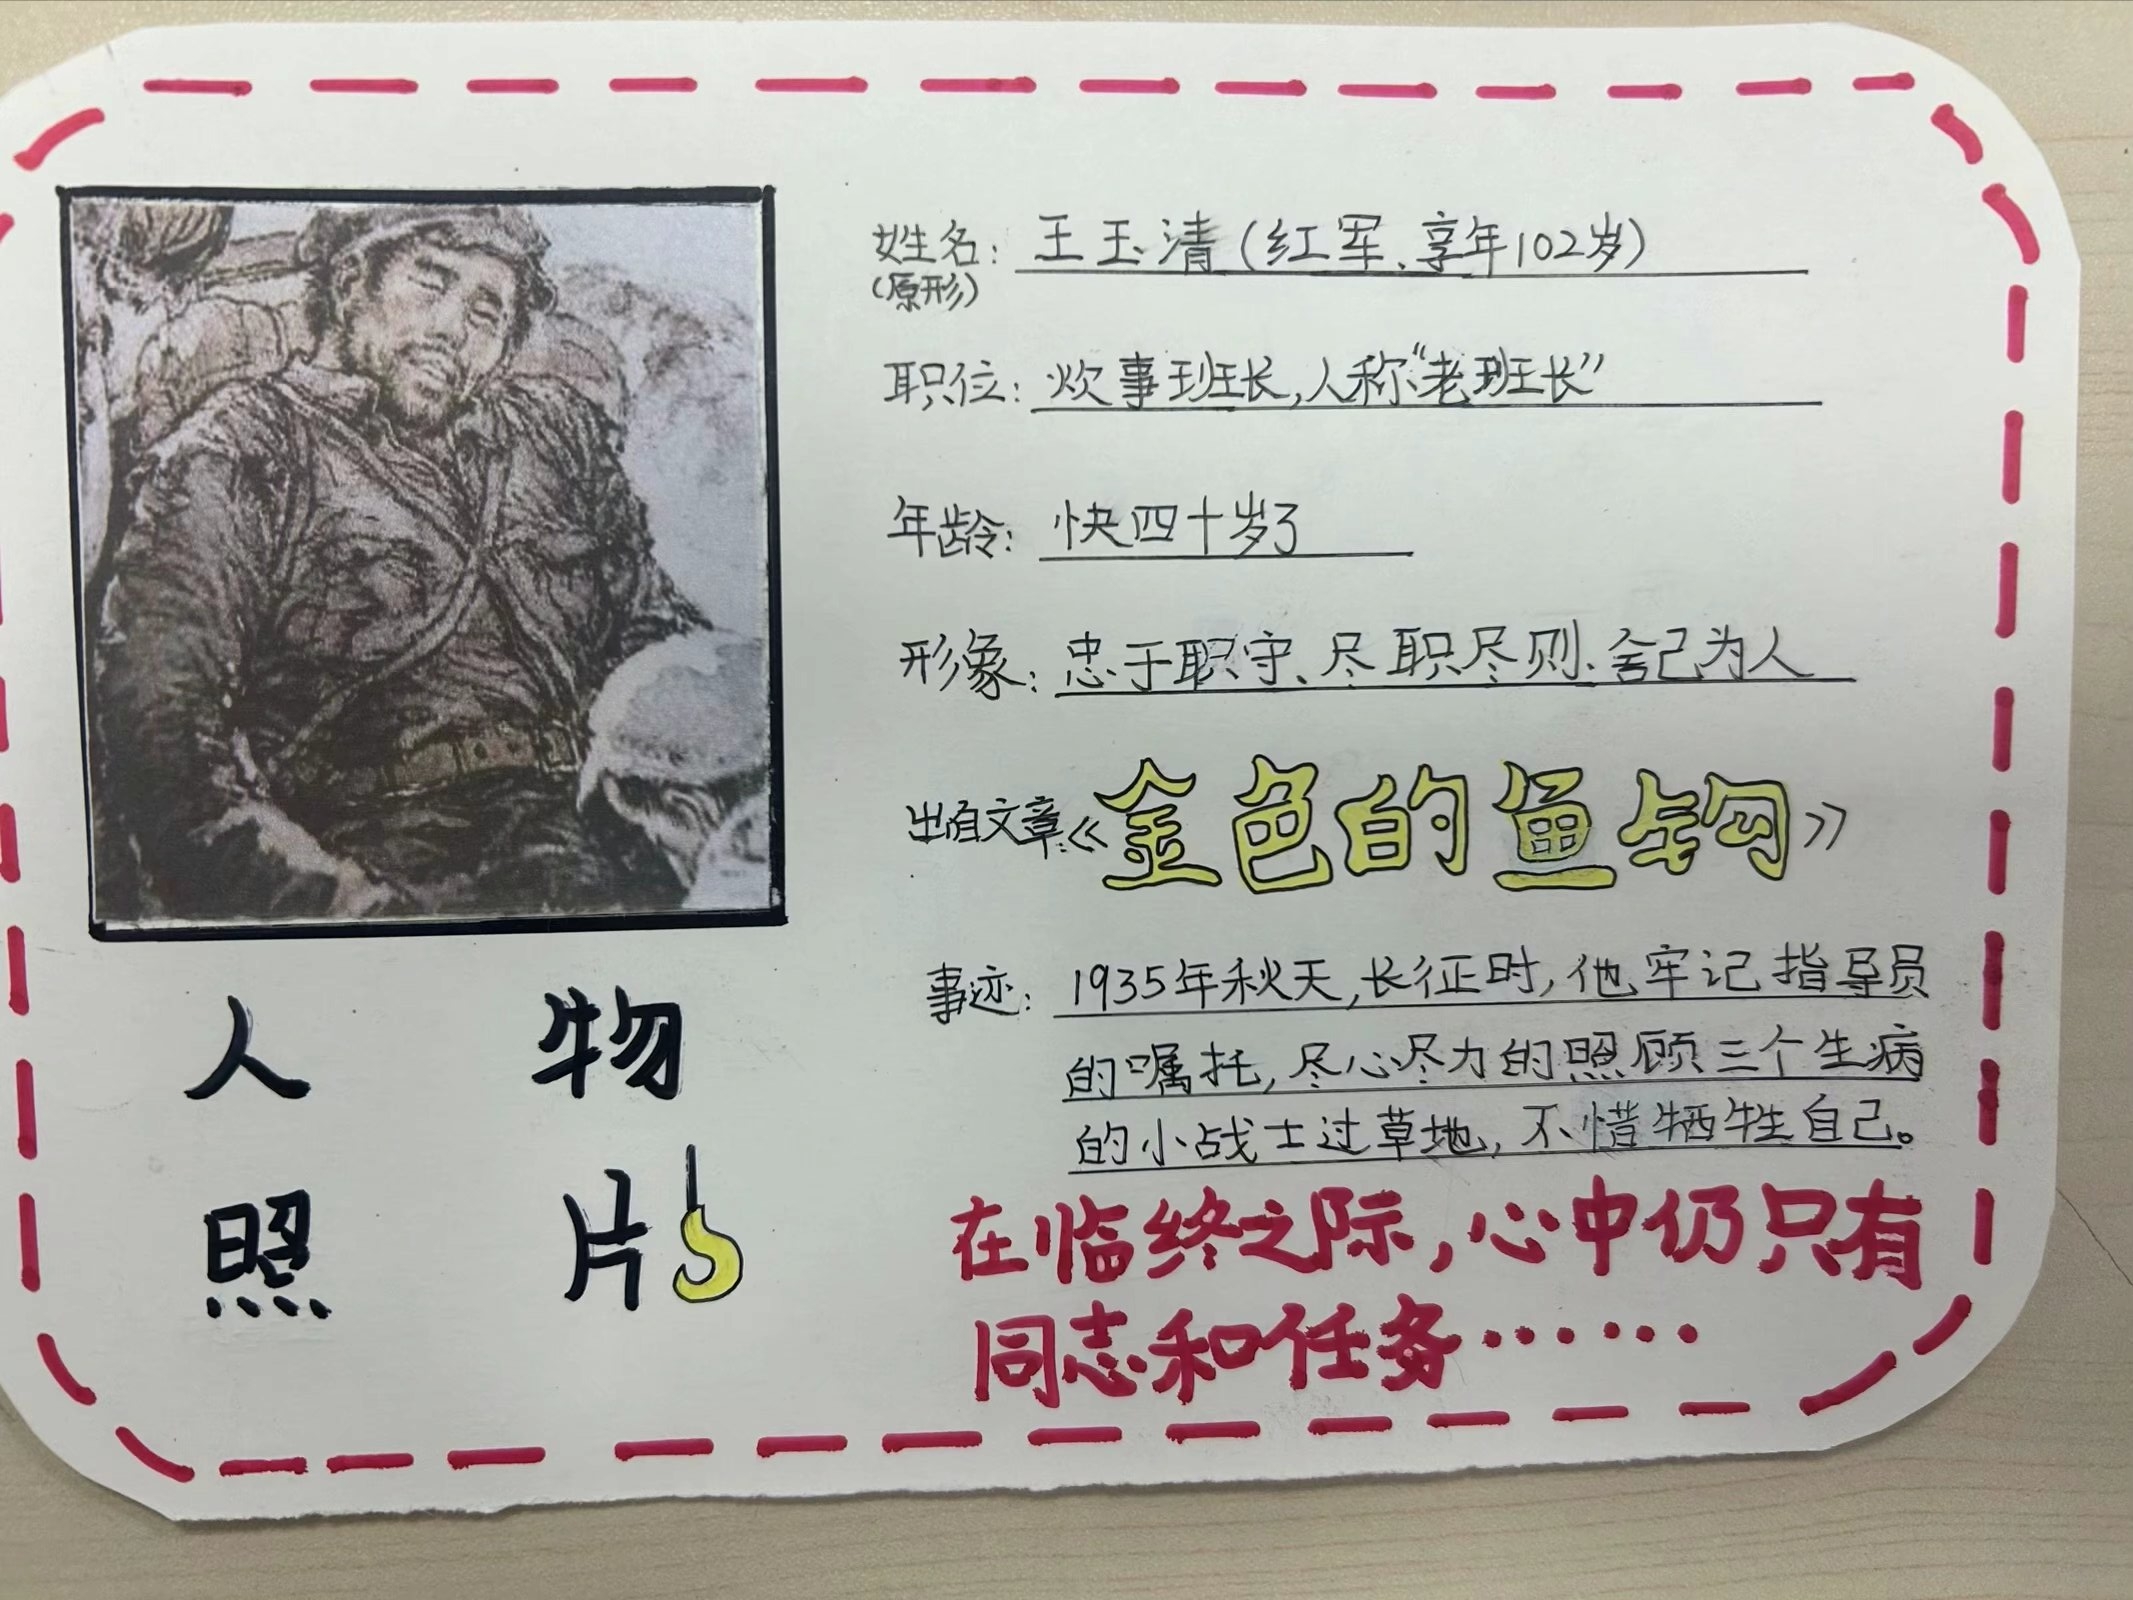 姓名：王玉清（红军、享年102岁）
（原形）
职位：炊事班长，人称“老班长”
年龄：快四十岁了
形象：忠于职守、尽职尽则、舍己为人
出自文章：《金色的鱼钩》
事迹：1935年秋天，长征时，他牢记指导员
的嘱托，尽心尽力的照顾三个生病
的小战士过草地，不惜牺牲自己。
在临终之际，心中仍只有
同志和任务……
人物
照片